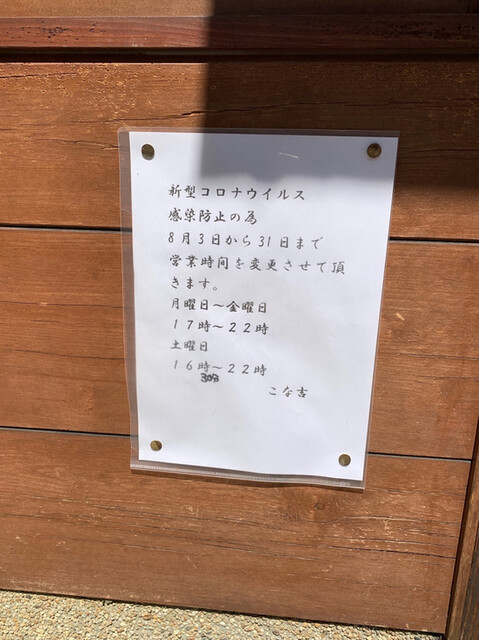 新型コロナウイルス
感染防止の為
8月3日から31日まで
営業時間を変更させて頂
きます。
月曜日～金曜日
17時～22時
土曜日
16時～22時
30分
こな吉